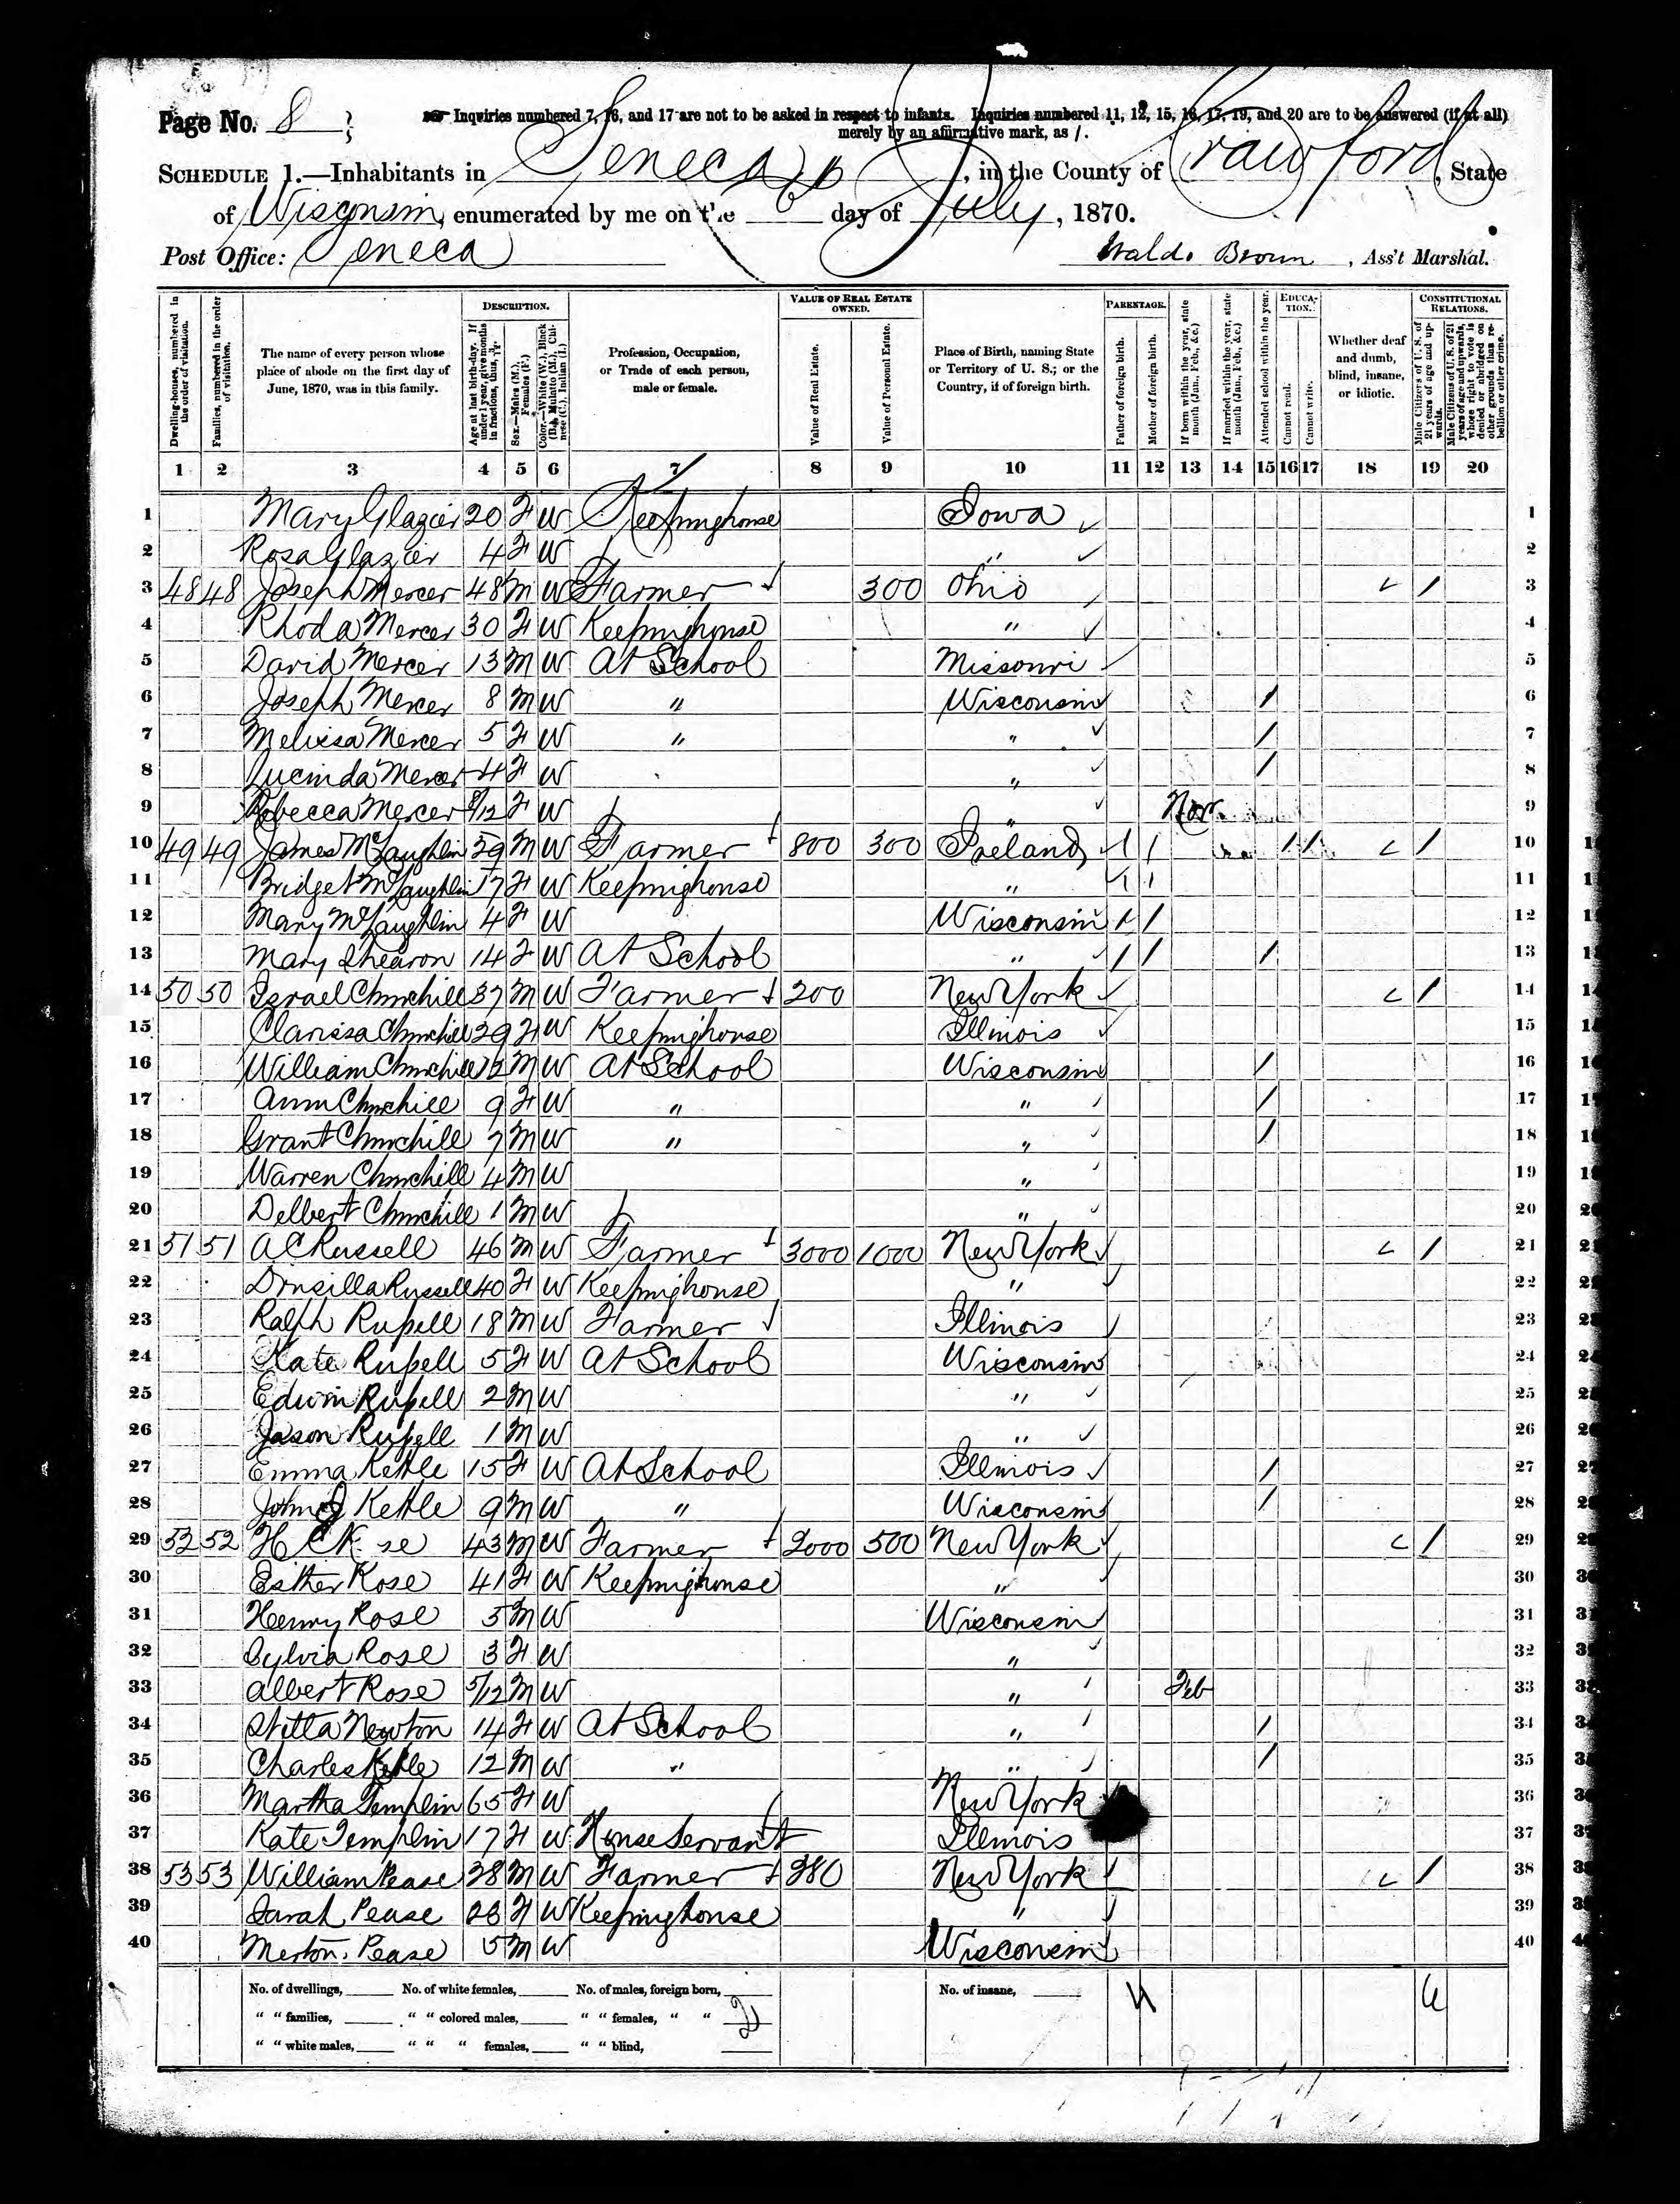 Page No. 8
Inquiries numbered 7, 16, and 17 are not to be asked in respect to infants. Inquiries numbered 11, 12, 15, 16, 17, 19, and 20 are to be answered (if at all)
merely by an affirmative mark, as /.
SCHEDULE 1.—Inhabitants in Seneca, in the County of Crawford, State
of Wisconsin, enumerated by me on the 6 day of July, 1870.
Post Office: Seneca
Waldo Brown, Ass't Marshal.
Dwelling-houses, numbered in the order of visitation.
Families, numbered in the order of visitation.
The name of every person whose place of abode on the first day of June, 1870, was in this family.
DESCRIPTION.
Age at last birth-day. If under 1 year, give months in fractions, thus,
Sex.—Males (M.), Females (F.)
Color.—White (W.), Black (B.), Mulatto (M.), Chinese (C.), Indian (I.)
Profession, Occupation, or Trade of each person, male or female.
VALUE OF REAL ESTATE OWNED.
Value of Real Estate.
Value of Personal Estate.
Place of Birth, naming State or Territory of U. S.; or the Country, if of foreign birth.
PARENTAGE.
Father of foreign birth.
Mother of foreign birth.
If born within the year, state month (Jan., Feb., &c.)
If married within the year, state month (Jan., Feb., &c.)
Attended school within the year.
EDUCATION.
Cannot read.
Cannot write.
Whether deaf and dumb, blind, insane, or idiotic.
CONSTITUTIONAL RELATIONS.
Male Citizens of U. S. of 21 years of age and upwards.
Male Citizens of U. S. of 21 years of age and upwards, whose right to vote is denied or abridged on other grounds than rebellion or other crime.
1 2 3 4 5 6 7 8 9 10 11 12 13 14 15 16 17 18 19 20
1 Mary Glazier 20 F W Keeping house Iowa 1
2 Rosa Glazier 4 F W " 2
3 48 48 Joseph Mercer 48 M W Farmer 300 Ohio / 3
4 Rhoda Mercer 30 F W Keeping house " 4
5 David Mercer 13 M W At School Missouri 5
6 Joseph Mercer 8 M W " Wisconsin / 6
7 Melissa Mercer 5 F W " " / 7
8 Lucinda Mercer 4 F W " / 8
9 Rebecca Mercer 8/12 F W " Nov 9
10 49 49 James McLaughlin 59 M W Farmer 800 300 Ireland / / / / / 10
11 Bridget McLaughlin 17 F W Keeping house " / / 11
12 Mary McLaughlin 4 F W Wisconsin / / 12
13 Mary Shearon 14 F W At School " / / / 13
14 50 50 Israel Churchill 37 M W Farmer 200 New York / 14
15 Clarissa Churchill 29 F W Keeping house Illinois 15
16 William Churchill 12 M W At School Wisconsin / 16
17 Ann Churchill 9 F W " " / 17
18 Grant Churchill 7 M W " " / 18
19 Warren Churchill 4 M W " 19
20 Delbert Churchill 1 M W " 20
21 51 51 A C Russell 46 M W Farmer 3000 1000 New York / 21
22 Drusilla Russell 40 F W Keeping house " 22
23 Ralph Russell 18 M W Farmer Illinois 23
24 Kate Russell 5 F W At School Wisconsin 24
25 Edwin Russell 2 M W " 25
26 Jason Russell 1 M W " 26
27 Emma Kettle 15 F W At School Illinois / 27
28 John J Kettle 9 M W " Wisconsin / 28
29 52 52 H C R se 43 M W Farmer 2000 500 New York / 29
30 Esther Rose 41 F W Keeping house " 30
31 Henry Rose 5 M W Wisconsin 31
32 Sylvia Rose 3 F W " 32
33 Albert Rose 5/12 M W " Feb 33
34 Newton 14 F W At School " / 34
35 Charles Kettle 12 M W " " / 35
36 Martha Templin 65 F W New York 36
37 Kate Templin 17 F W House Servant Illinois 37
38 53 53 William Pease 28 M W Farmer 380 New York / 38
39 Sarah Pease 26 F W Keeping house " 39
40 Merton Pease 5 M W Wisconsin 40
No. of dwellings, No. of white females, No. of males, foreign born, No. of insane, 4 6
" " families, " " colored males, " " females, " "
" " white males, " " " females, " " blind,